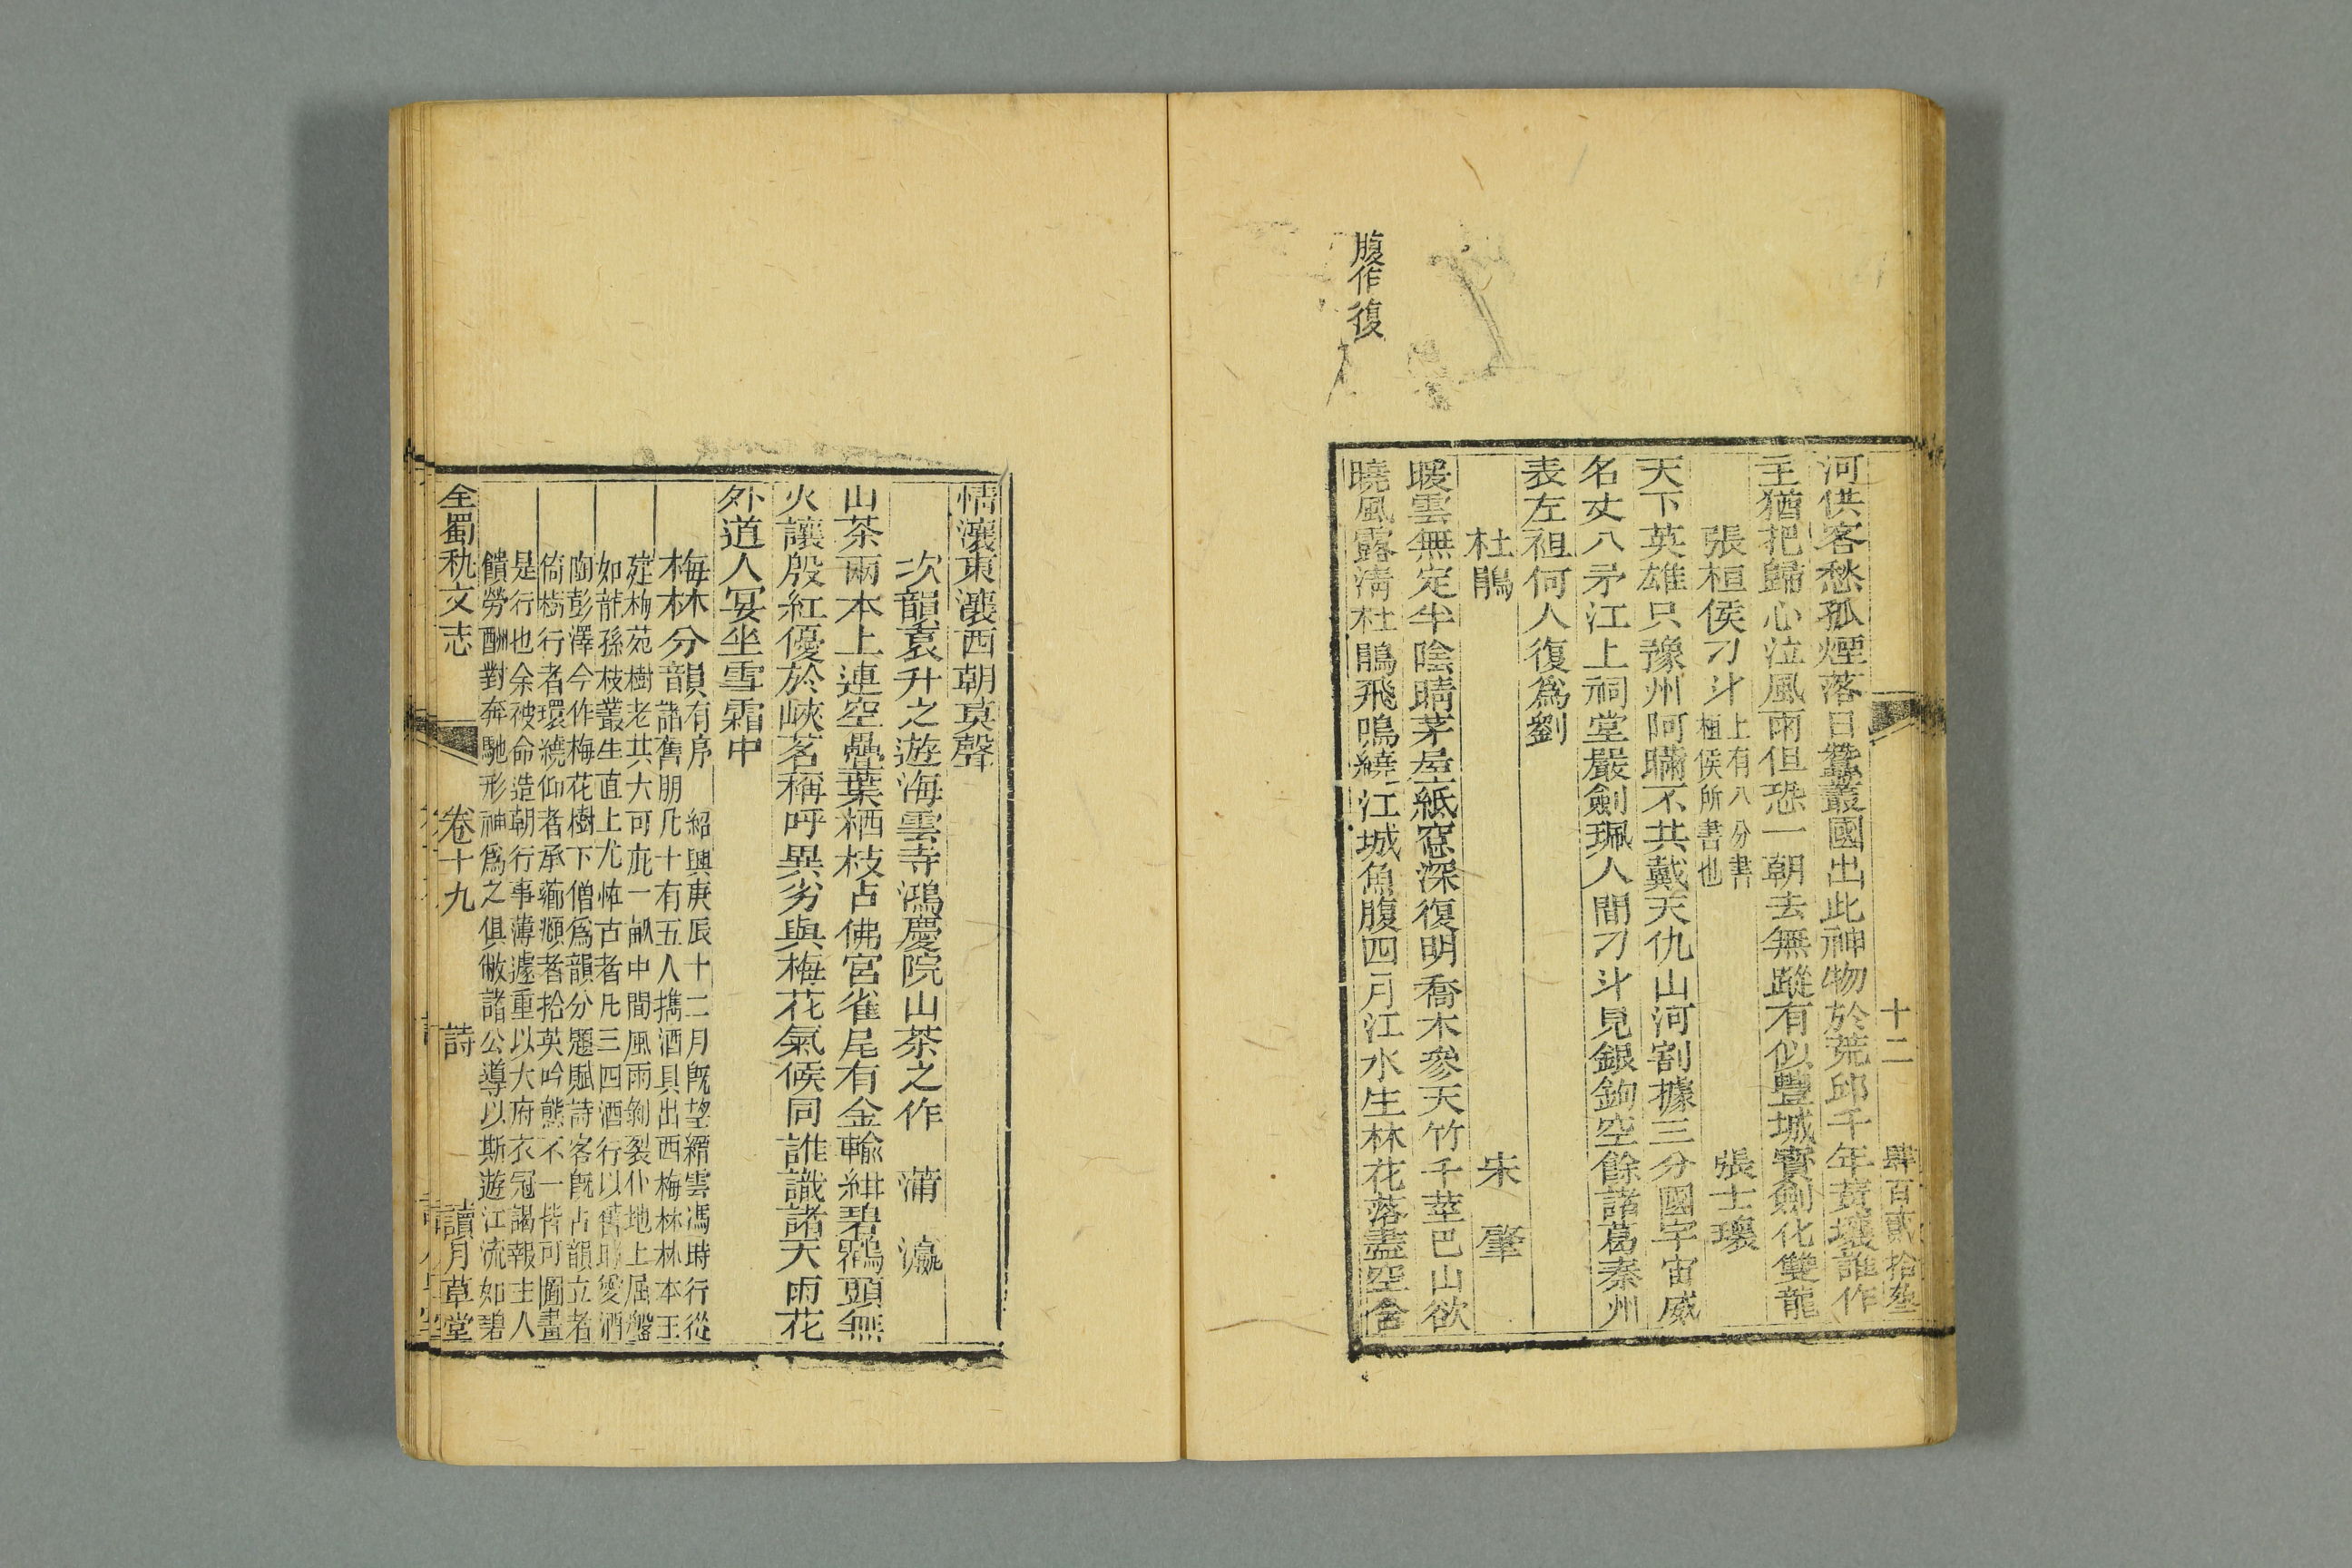 腹作復
十二 肆百貳拾叁
河供客愁孤煙落日蠶叢國出此神物於荒邱千年黃壤誰作
主猶把歸心泣風雨但恐一朝去無蹤有似豐城寶劍化雙龍
張桓侯刁斗 上有八分書 桓侯所書也 張士環
天下英雄只豫州阿瞞不共戴天仇山河割據三分國宇宙威
名丈八矛江上祠堂嚴劍珮人間刁斗見銀鉤空餘諸葛秦州
表左袒何人復爲劉
杜鵑 宋肇
暖雲無定半陰晴茅屋紙窓深復明喬木參天竹千莖巴山欲
曉風露淸杜鵑飛鳴繞江城魚腹四月江水生林花落盡空舍
情瀼東瀼西朝莫聲
次韻袁升之遊海雲寺鴻慶院山茶之作 蒲瀛
山茶兩本上連空疊葉栖枝占佛宮雀尾有金輸紺碧鶴頭無
火讓殷紅優於峽茗稱呼異劣與梅花氣候同誰識諸天雨花
外道人宴坐雪霜中
梅林分韻有序 紹興庚辰十二月旣望縉雲馮時行從
諸舊朋凡十有五人攜酒具出西梅林林本王
建梅苑樹老其大可庇一畝中間風雨剝裂仆地上屈盤
如龍孫枝叢生直上尤怪古者凡三四酒行以舊時愛酒
陶彭澤今作梅花樹下僧爲韻分題賦詩客旣占韻立者
倚樹行者環繞仰者承蘤頫者拾英吟態不一皆可圖畫
是行也余被命造朝行事薄遽重以大府衣冠謁報主人
饋勞酬對奔馳形神爲之俱敝諸公導以斯遊江流如碧
全蜀秇文志 卷十九 詩 讀月草堂